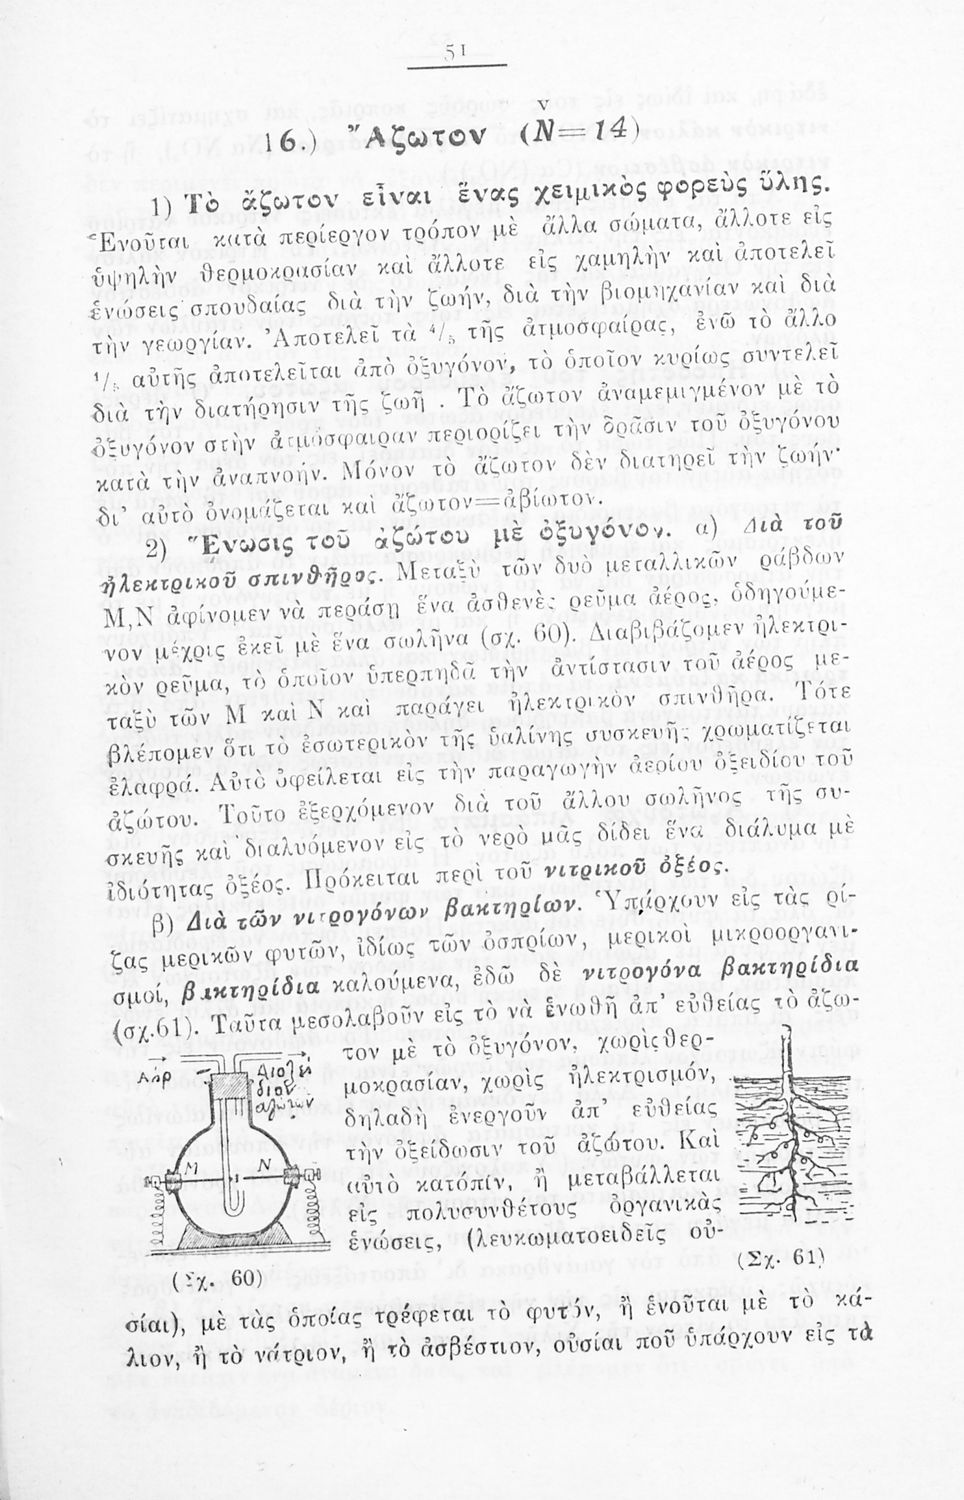 51
V
16.) Ἄζωτον (N=14)
1) Τὸ ἄζωτον εἶναι ἕνας χειμικὸς φορεὺς ὕλης.
Ἑνοῦται κατὰ περίεργον τρόπον μὲ ἄλλα σώματα, ἄλλοτε εἰς
ὑψηλὴν θερμοκρασίαν καὶ ἄλλοτε εἰς χαμηλὴν καὶ ἀποτελεῖ
ἑνώσεις σπουδαίας διὰ τὴν ζωήν, διὰ τὴν βιομηχανίαν καὶ διὰ
τὴν γεωργίαν. Ἀποτελεῖ τὰ 4/5 τῆς ἀτμοσφαίρας, ἐνῶ τὸ ἄλλο
1/5 αὐτῆς ἀποτελεῖται ἀπὸ ὀξυγόνον, τὸ ὁποῖον κυρίως συντελεῖ
διὰ τὴν διατήρησιν τῆς ζωῆ . Τὸ ἄζωτον ἀναμεμιγμένον μὲ τὸ
ὀξυγόνον στὴν ἀτμόσφαιραν περιορίζει τὴν δρᾶσιν τοῦ ὀξυγόνου
κατὰ τὴν ἀναπνοήν. Μόνον τὸ ἄζωτον δὲν διατηρεῖ τὴν ζωήν·
δι' αὐτὸ ὀνομάζεται καὶ ἄζωτον=ἀβίωτον.
2) Ἕνωσις τοῦ ἀζώτου μὲ ὀξυγόνον. α) Διὰ τοῦ
ἠλεκτρικοῦ σπινθῆρος. Μεταξὺ τῶν δυὸ μεταλλικῶν ράβδων
Μ,Ν ἀφίνομεν νὰ περάσῃ ἕνα ἀσθενὲς ρεῦμα ἀέρος, ὁδηγούμε-
νον μέχρις ἐκεῖ μὲ ἕνα σωλῆνα (σχ. 60). Διαβιβάζομεν ἠλεκτρι-
κὸν ρεῦμα, τὸ ὁποῖον ὑπερπηδᾶ τὴν ἀντίστασιν τοῦ ἀέρος με-
ταξὺ τῶν Μ καὶ Ν καὶ παράγει ἠλεκτρικὸν σπινθῆρα. Τότε
βλέπομεν ὅτι τὸ ἐσωτερικὸν τῆς ὑαλίνης συσκευῆς χρωματίζεται
ἐλαφρά. Αὐτὸ ὀφείλεται εἰς τὴν παραγωγὴν ἀερίου ὀξειδίου τοῦ
ἀζώτου. Τοῦτο ἐξερχόμενον διὰ τοῦ ἄλλου σωλῆνος τῆς συ-
σκευῆς καὶ διαλυόμενον εἰς τὸ νερὸ μᾶς δίδει ἕνα διάλυμα μὲ
ἰδιότητας ὀξέος. Πρόκειται περὶ τοῦ νιτρικοῦ ὀξέος.
β) Διὰ τῶν νιτρογόνων βακτηρίων. Ὑπάρχουν εἰς τὰς ρί-
ζας μερικῶν φυτῶν, ἰδίως τῶν ὀσπρίων, μερικοὶ μικροοργανι-
σμοί, βακτηρίδια καλούμενα, ἐδῶ δὲ νιτρογόνα βακτηρίδια
(σχ.61). Ταῦτα μεσολαβοῦν εἰς τὸ νὰ ἑνωθῆ ἀπ' εὐθείας τὸ ἄζω-
τον μὲ τὸ ὀξυγόνον, χωρὶς θερ-
μοκρασίαν, χωρὶς ἠλεκτρισμόν,
δηλαδὴ ἐνεργοῦν ἀπ' εὐθείας
τὴν ὀξείδωσιν τοῦ ἀζώτου. Καὶ
αὐτὸ κατόπιν, ἢ μεταβάλλεται
εἰς πολυσυνθέτους ὀργανικὰς
ἑνώσεις, (λευκωματοειδεῖς οὐ-
Ἀὴρ
διον
ἀζώτου
M N
(Σχ. 60)
(Σχ. 61)
σίαι), μὲ τὰς ὁποίας τρέφεται τὸ φυτόν, ἢ ἑνοῦται μὲ τὸ κά-
λιον, ἢ τὸ νάτριον, ἢ τὸ ἀσβέστιον, οὐσίαι ποῦ ὑπάρχουν εἰς τὰ